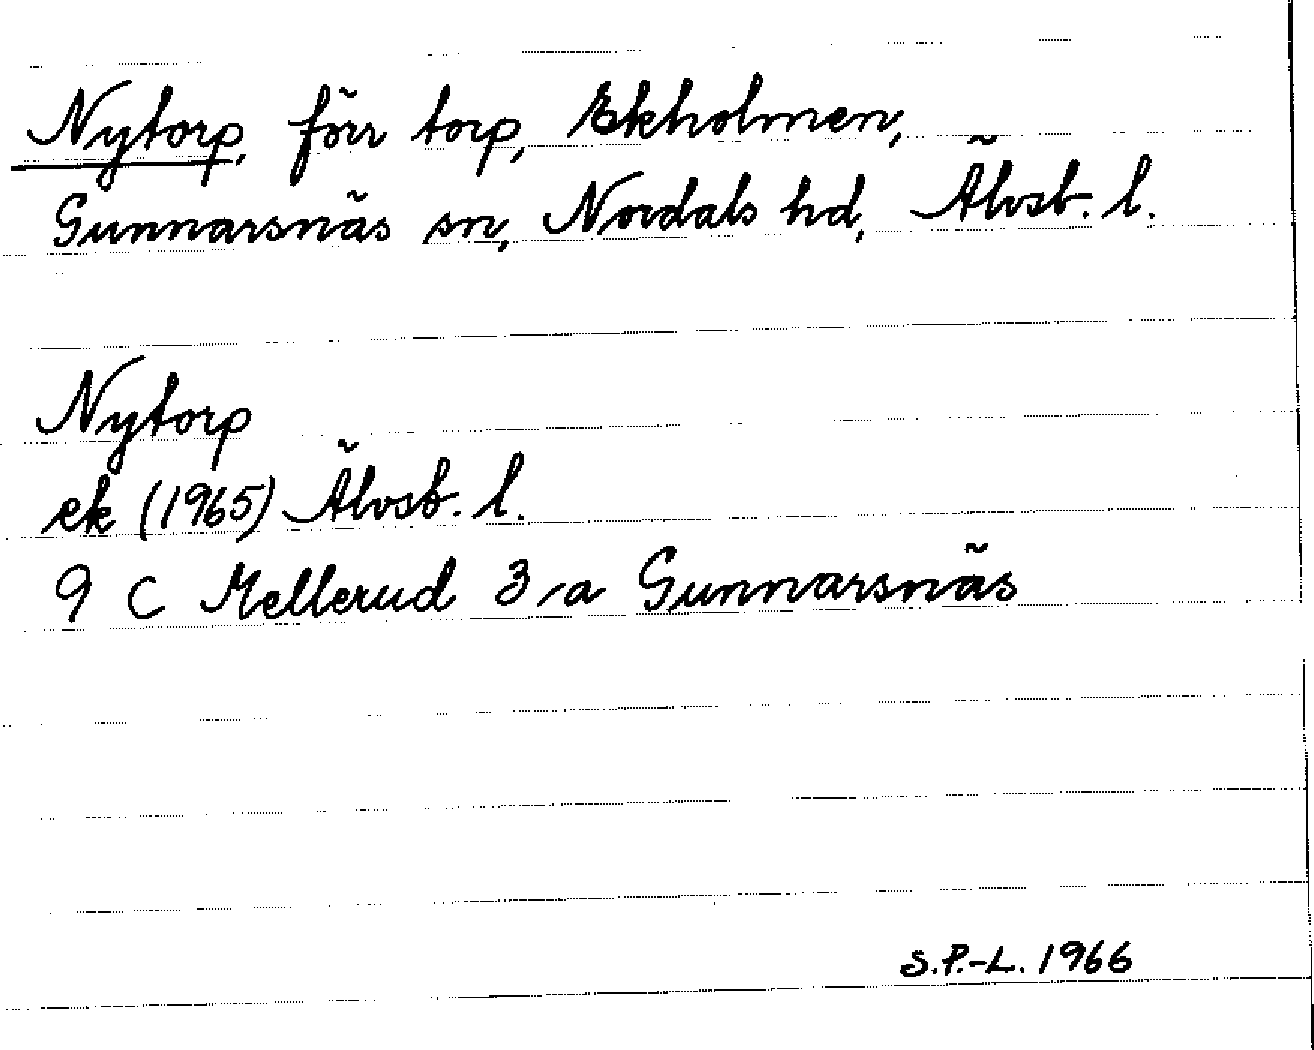 Nytorp, förr torp, Ekholmen,
Gunnarsnäs sn, Nordals hd, Älvsb. l.
Nytorp
ek (1965) Älvsb. l.
9 C Mellerud 3 a Gunnarsnäs
S.P.-L. 1966